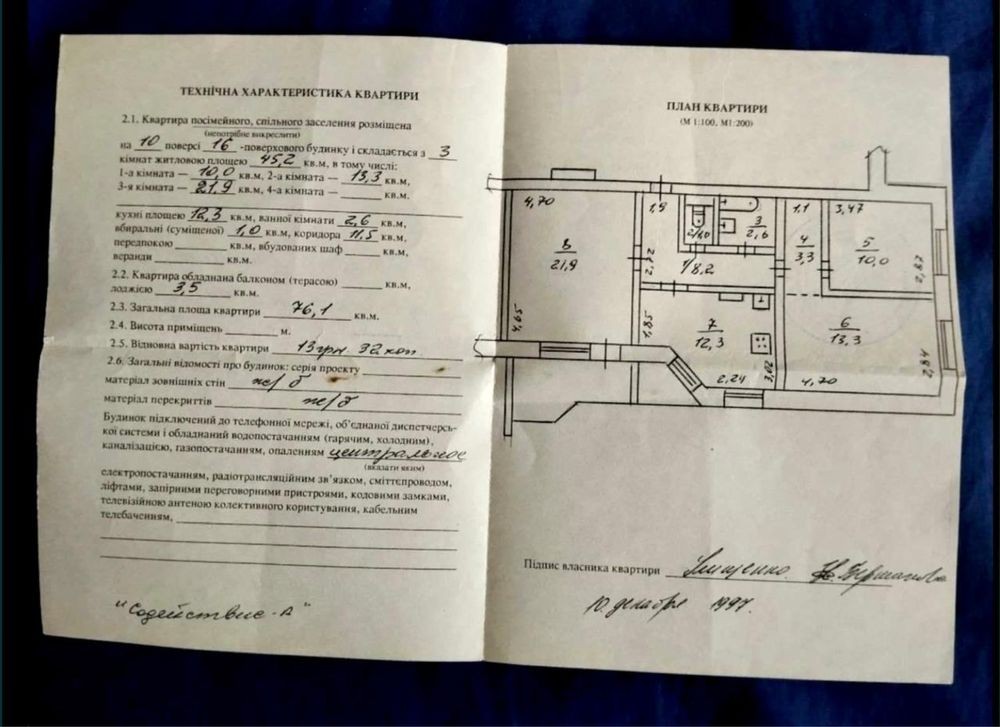 ТЕХНІЧНА ХАРАКТЕРИСТИКА КВАРТИРИ
2.1. Квартира посімейного, спільного заселення розміщена
(непотрібне викреслити)
на 10 поверсі 16 -поверхового будинку і складається з 3
кімнат житловою площею 45,2 кв.м, в тому числі:
1-а кімната — 10,0 кв.м, 2-а кімната — 13,3 кв.м,
3-я кімната — 21,9 кв.м, 4-а кімната — кв.м,
кухні площею 12,3 кв.м, ванної кімнати 2,6 кв.м,
вбиральні (суміщеної) 1,0 кв.м, коридора 11,5 кв.м,
передпокою кв.м, вбудованих шаф кв.м,
веранди кв.м.
2.2. Квартира обладнана балконом (терасою) кв.м,
лоджією 3,5 кв.м.
2.3. Загальна площа квартири 76,1 кв.м.
2.4. Висота приміщень м.
2.5. Відновна вартість квартири 13 грн 32 коп
2.6. Загальні відомості про будинок: серія проекту
матеріал зовнішніх стін ж/б
матеріал перекриттів ж/б
Будинок підключений до телефонної мережі, об'єднаної диспетчерсь-
кої системи і обладнаний водопостачанням (гарячим, холодним),
каналізацією, газопостачанням, опаленням центральное
(вказати яким)
електропостачанням, радіотрансляційним зв'язком, сміттєпроводом,
ліфтами, запірними переговорними пристроями, кодовими замками,
телевізійною антеною колективного користування, кабельним
телебаченням,
"Содействие-А"
ПЛАН КВАРТИРИ
(М 1:100, М1:200)
4,70
1,9
1,1
3,47
3
2,6
8
21,9
2,72
1/8,2
4
3,3
5
10,0
2,87
4,65
1,85
7
12,3
6
13,3
2,84
3,02
2,24
4,70
Підпис власника квартири Мищенко
10 декабря 1997.